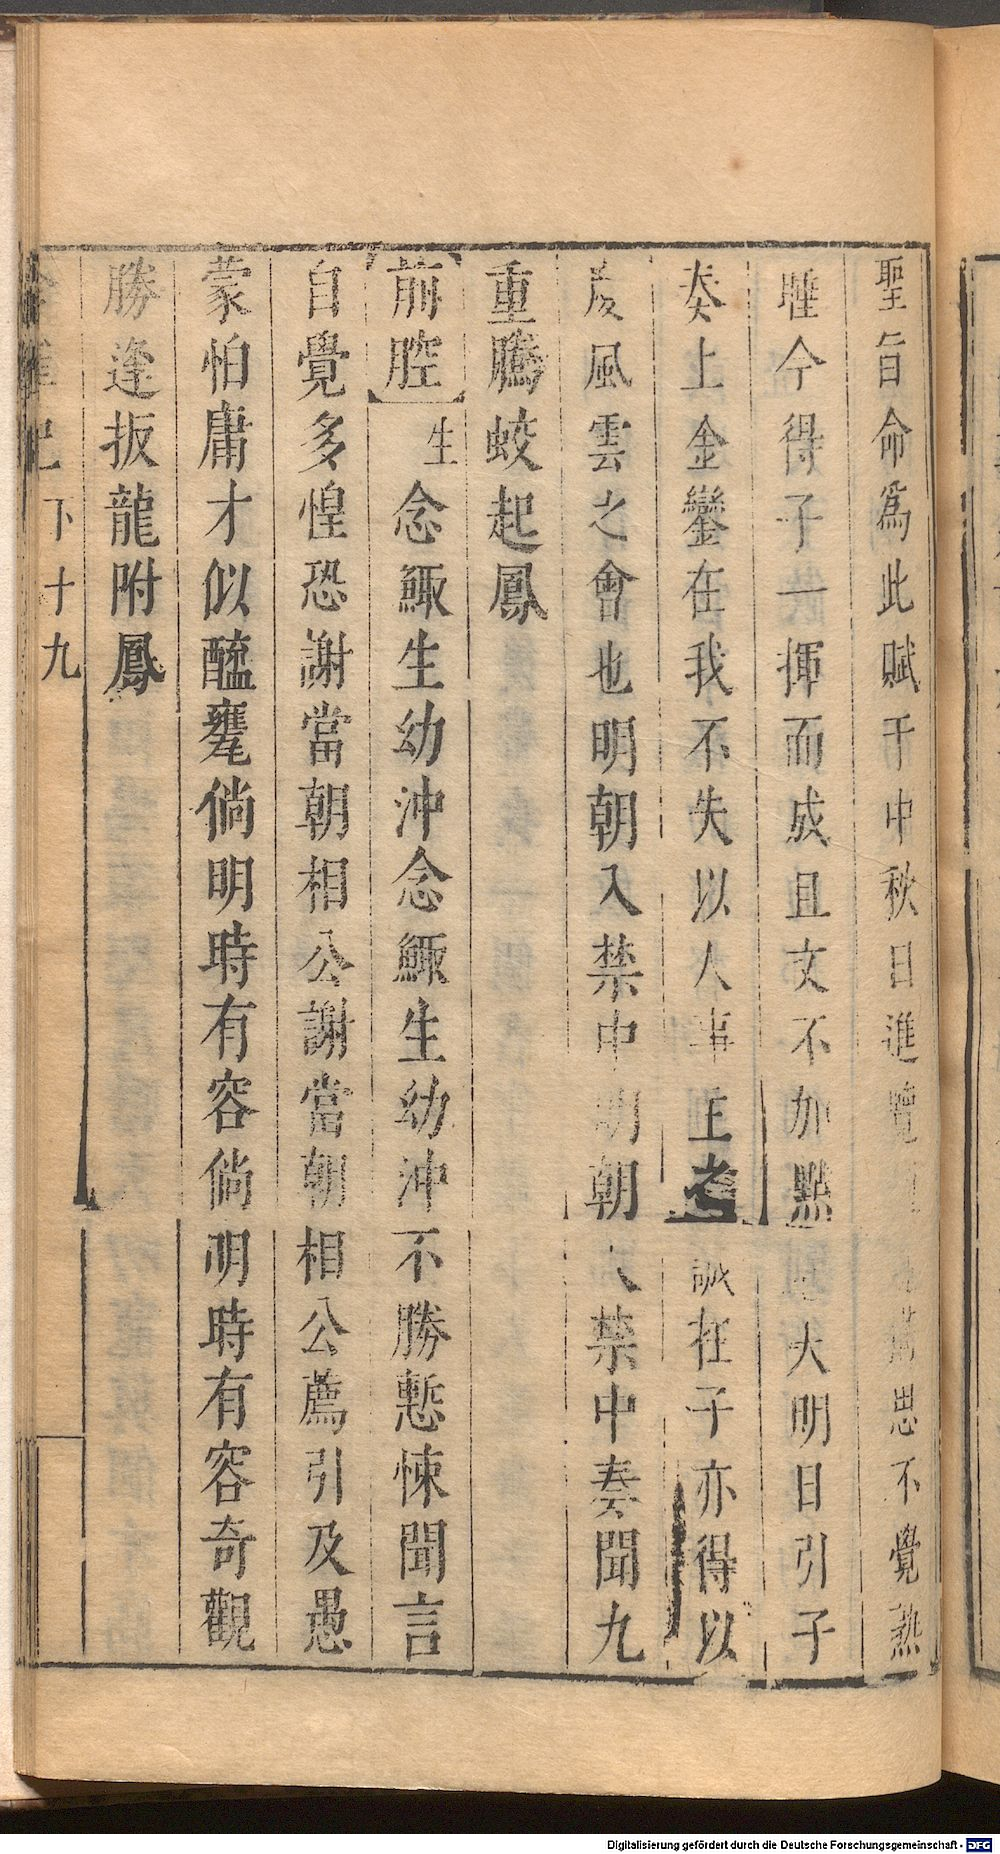 聖旨命爲此賦于中秋日進覽思不覺熟
睡今得子一揮而成且文不加點大明日引子
奏上金鑾在我不失以人事主之誠在子亦得以
風雲之會也明朝入禁中明朝入禁中奏聞九
重騰蛟起鳳
前腔生念鯫生幼沖念鯫生幼沖不勝慙悚聞言
自覺多惶恐謝當朝相公謝當朝相公薦引及愚
蒙怕庸才似醯甕倘明時有容倘明時有容奇觀
勝逢扳龍附鳳
記 下 十九
Digitalisierung gefördert durch die Deutsche Forschungsgemeinschaft - DFG